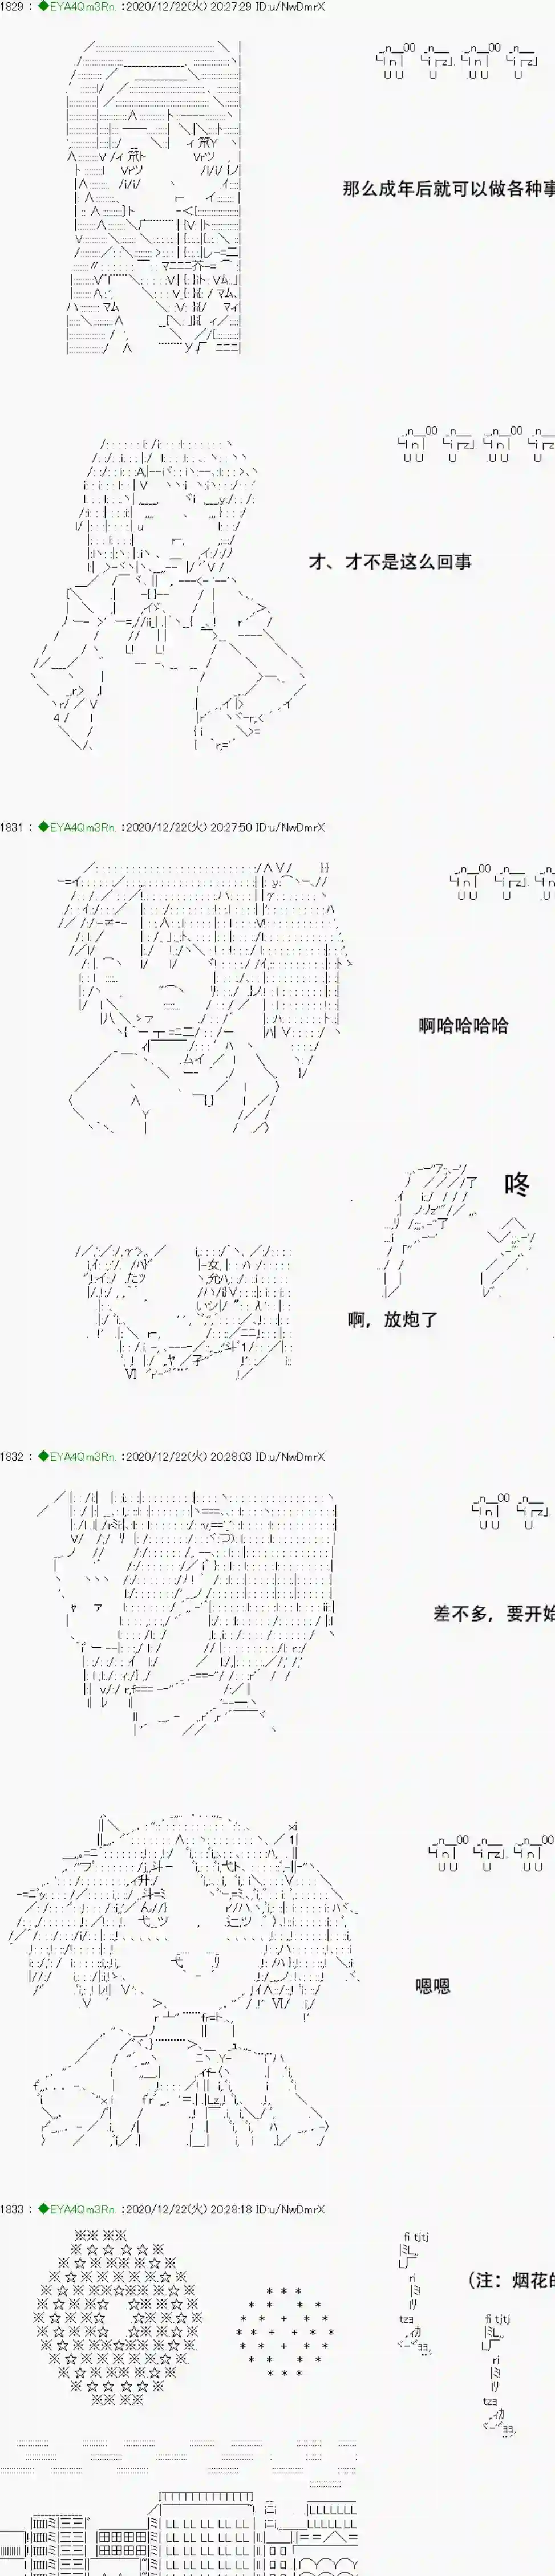 1829 : ◆EYA4Qm3Rn. :2020/12/22(火) 20:27:29 ID:u/NwDmrX
那么成年后就可以做各种事
才、才不是这么回事
1831 : ◆EYA4Qm3Rn. :2020/12/22(火) 20:27:50 ID:u/NwDmrX
啊哈哈哈哈
咚
啊，放炮了
1832 : ◆EYA4Qm3Rn. :2020/12/22(火) 20:28:03 ID:u/NwDmrX
差不多，要开始
嗯嗯
1833 : ◆EYA4Qm3Rn. :2020/12/22(火) 20:28:18 ID:u/NwDmrX
（注：烟花的